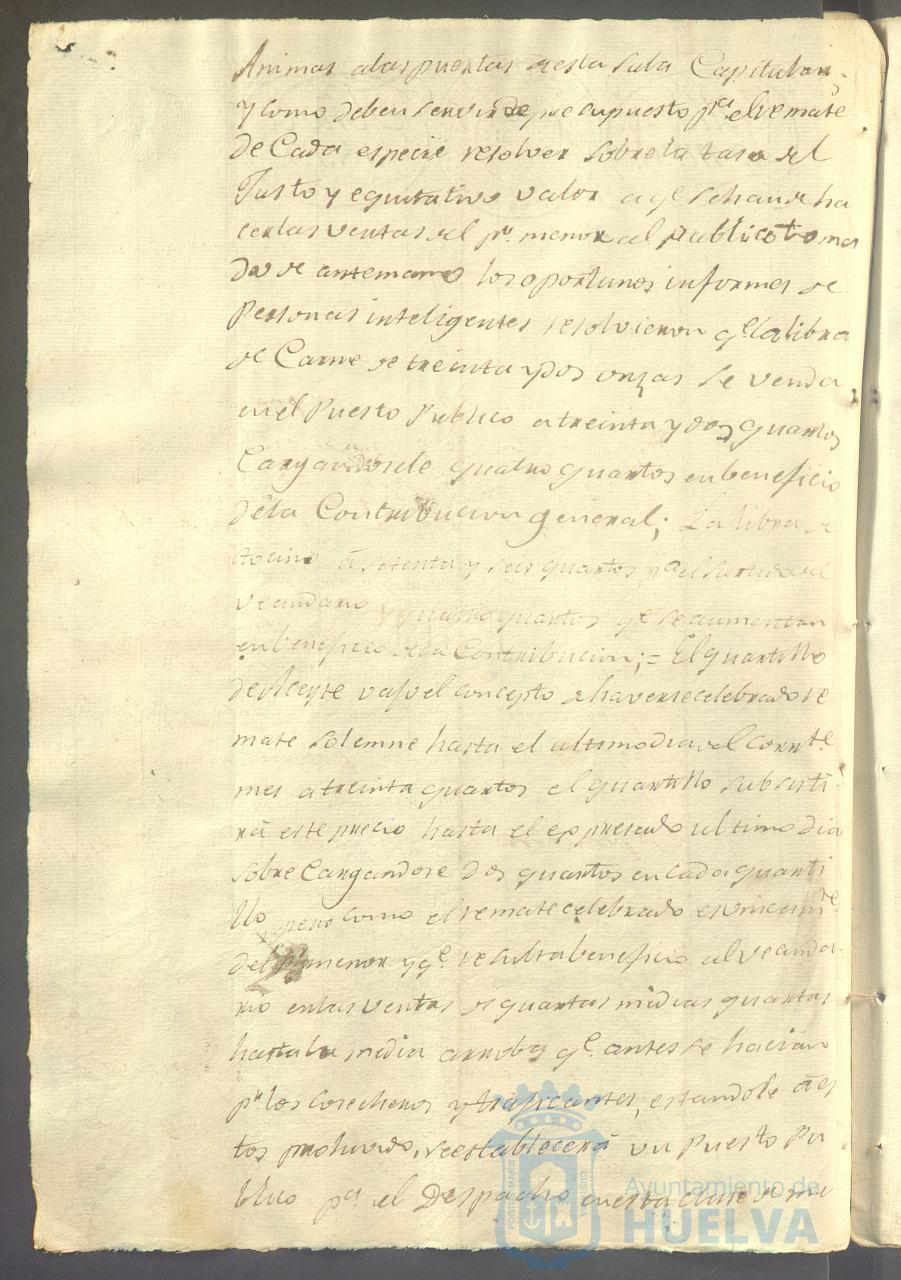 Animas alas puertas de esta Sala Capitular,
y como deben servir de presupuesto pa. el remate
de Cada especie resolver sobre la tasa del
Justo y equitativo valor a qe. se han de ha
cer las ventas del pr. menor al publico toma
do de antemano los oportunos informes de
Personas inteligentes resolvieron qe. la libra
de Carne de treinta y dos onzas se venda
en el Puesto Publico a treinta y dos quartos
Cargandosele quatro quartos en beneficio
dela Contribucion general; La libra de
tocino á setenta y seis quartos pa. el surtido del
vecindario y quatro quartos qe. se aumentan
en beneficio dela Contribucion; = El quartillo
de Aceyte vajo el concepto de haverse celebrado re
mate solemne hasta el ultimo dia del corrte.
mes a treinta quartos el quartillo subsisti
rá este precio hasta el expresado ultimo dia
sobre Cargandose dos quartos en cada quarti
llo pero como el remate celebrado es
del Pr. menor y qe. resulta beneficio al vecinda
rio en las ventas de quartas medias quartas
hasta la media arroba qe. antes se hacian
pr. los Cosecheros y traficantes, estandole á es
tos prohivido, se establecerá un Puesto Pu
blico pa. el Despacho en esta clase de me
Ayuntamiento de
HUELVA